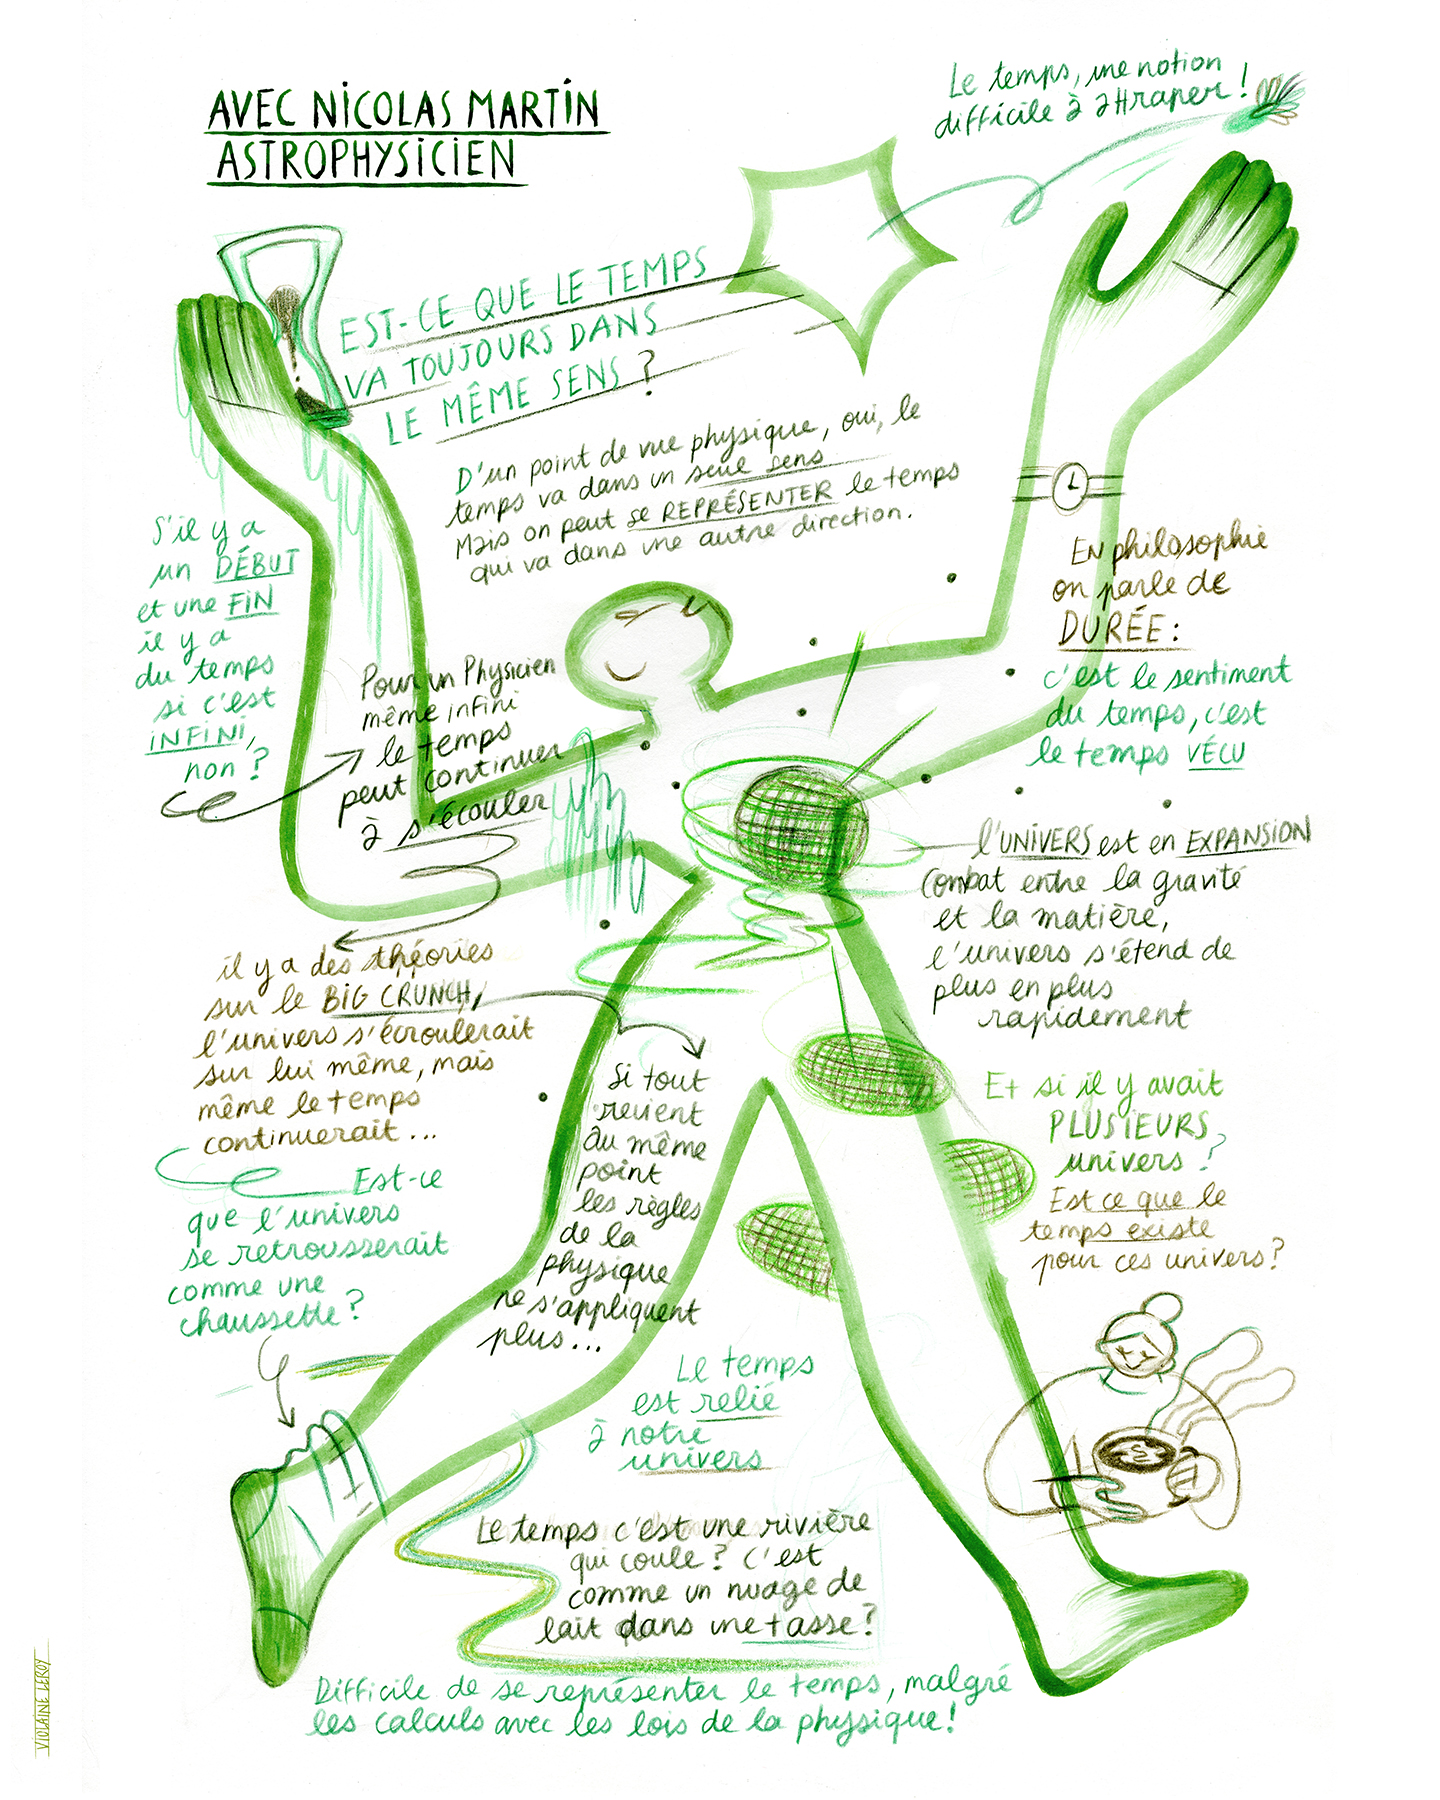 AVEC NICOLAS MARTIN
ASTROPHYSICIEN
Le temps, une notion
difficile à attraper !
EST-CE QUE LE TEMPS
VA TOUJOURS DANS
LE MÊME SENS ?
D'un point de vue physique, oui, le
temps va dans un seul sens
Mais on peut se REPRÉSENTER le temps
qui va dans une autre direction.
S'il y a
un DÉBUT
et une FIN
il y a
du temps
si c'est
INFINI,
non ?
Pour un Physicien
même infini
le temps
peut continuer
à s'écouler
En philosophie
on parle de
DURÉE :
c'est le sentiment
du temps, c'est
le temps VÉCU
l'UNIVERS est en EXPANSION
Combat entre la gravité
et la matière,
l'univers s'étend de
plus en plus
rapidement
il y a des théories
sur le BIG CRUNCH,
l'univers s'écroulerait
sur lui même, mais
même le temps
continuerait ...
Si tout
revient
au même
point
les règles
de la
physique
ne s'appliquent
plus ...
Et si il y avait
PLUSIEURS
univers ?
Est ce que le
temps existe
pour ces univers ?
Est-ce
que l'univers
se retrousserait
comme une
chaussette ?
Le temps
est relié
à notre
univers
Le temps c'est une rivière
qui coule ? C'est
comme un nuage de
lait dans une tasse ?
Difficile de se représenter le temps, malgré
les calculs avec les lois de la physique !
VIOLAINE LEROY